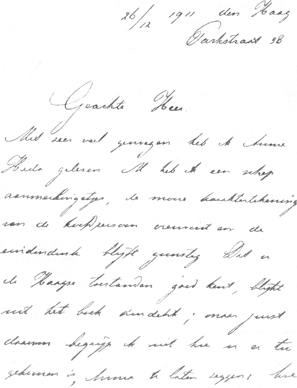 26/12 1911 den Haag
Parkstraat 38
Geachte Heer.
Met zeer veel genoegen heb ik Annie
Hada gelezen Al heb ik een schep
aanmerkingetjes, de mooie karakterteekening
van de hoofdpersoon overwint en de
eindindruk blijft gunstig Dat u
de Haagse toestanden goed kent, blijkt
uit het boek duidelijk; maar juist
daarom begrijp ik niet hoe u er toe
gekomen is, Anna te laten zeggen: hoe